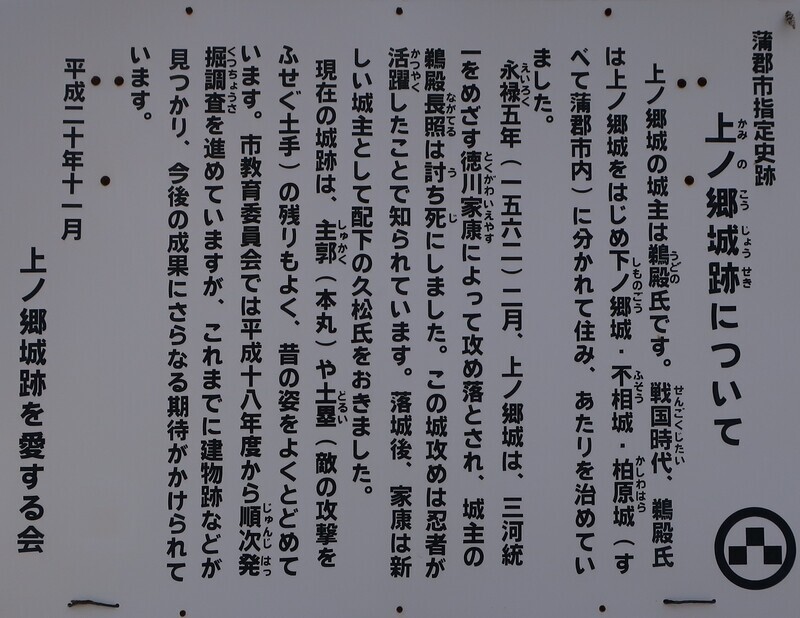 蒲郡市指定史跡
上ノ郷城跡について
上ノ郷城の城主は鵜殿氏です。戦国時代、鵜殿氏
は上ノ郷城をはじめ下ノ郷城・不相城・柏原城（す
べて蒲郡市内）に分かれて住み、あたりを治めてい
ました。
永禄五年（一五六二）二月、上ノ郷城は、三河統
一をめざす徳川家康によって攻め落とされ、城主の
鵜殿長照は討ち死にしました。この城攻めは忍者が
活躍したことで知られています。落城後、家康は新
しい城主として配下の久松氏をおきました。
現在の城跡は、主郭（本丸）や土塁（敵の攻撃を
ふせぐ土手）の残りもよく、昔の姿をよくとどめて
います。市教育委員会では平成十八年度から順次発
掘調査を進めていますが、これまでに建物跡などが
見つかり、今後の成果にさらなる期待がかけられて
います。
平成二十年十一月
上ノ郷城跡を愛する会